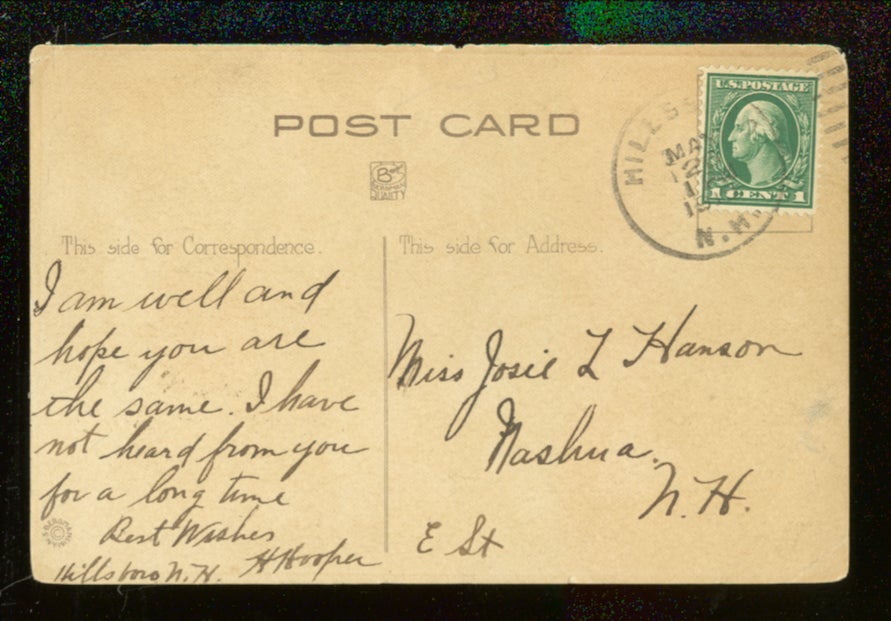 POST CARD
BERGMAN
QUALITY
U.S. POSTAGE
1 CENT 1
HILLSB
MAY
12
N.H.
This side for Correspondence.
I am well and
hope you are
the same. I have
not heard from you
for a long time
Best Wishes
Hillsboro N.H. H Hooper
This side for Address.
Miss Josie L Hanson
Nashua.
N.H.
E St